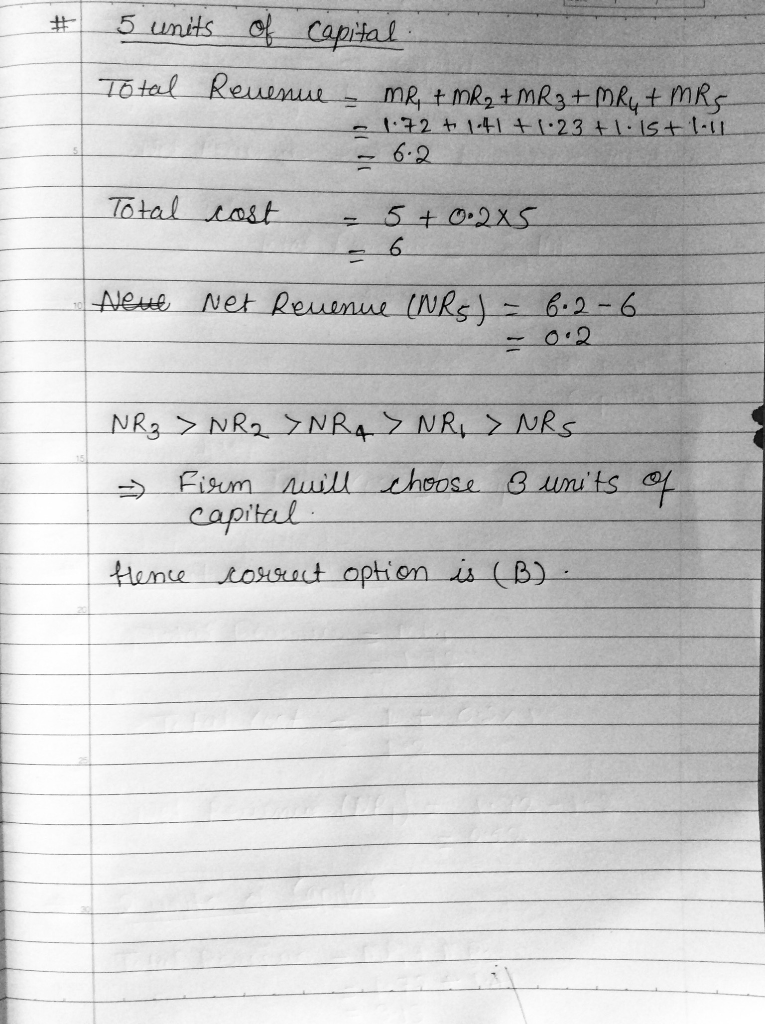 # 5 units of Capital.
Total Revenue = MR1 + MR2 + MR3 + MR4 + MR5
= 1.72 + 1.41 + 1.23 + 1.15 + 1.11
= 6.2
Total cost = 5 + 0.2X5
= 6
Neue Net Revenue (NR5) = 6.2 - 6
= 0.2
NR3 > NR2 > NR4 > NR1 > NR5
⇒ Firm will choose 3 units of
capital.
Hence correct option is (B).